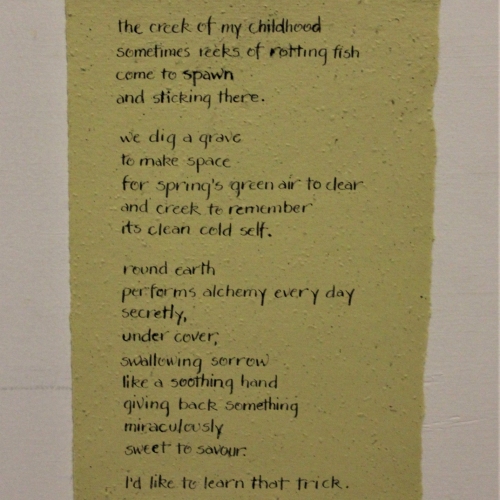 the creek of my childhood
sometimes reeks of rotting fish
come to spawn
and sticking there.
we dig a grave
to make space
for spring's green air to clear
and creek to remember
its clean cold self.
round earth
performs alchemy every day
secretly,
under cover,
swallowing sorrow
like a soothing hand
giving back something
miraculously
sweet to savour.
I'd like to learn that trick.